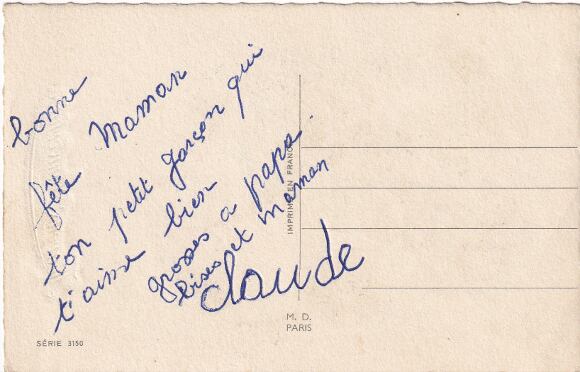 bonne
fête Maman
ton petit garçon qui
t'aime bien
grosses à papa.
bises et maman
Claude
IMPRIMÉ EN FRANCE
M. D.
PARIS
SÉRIE 3150